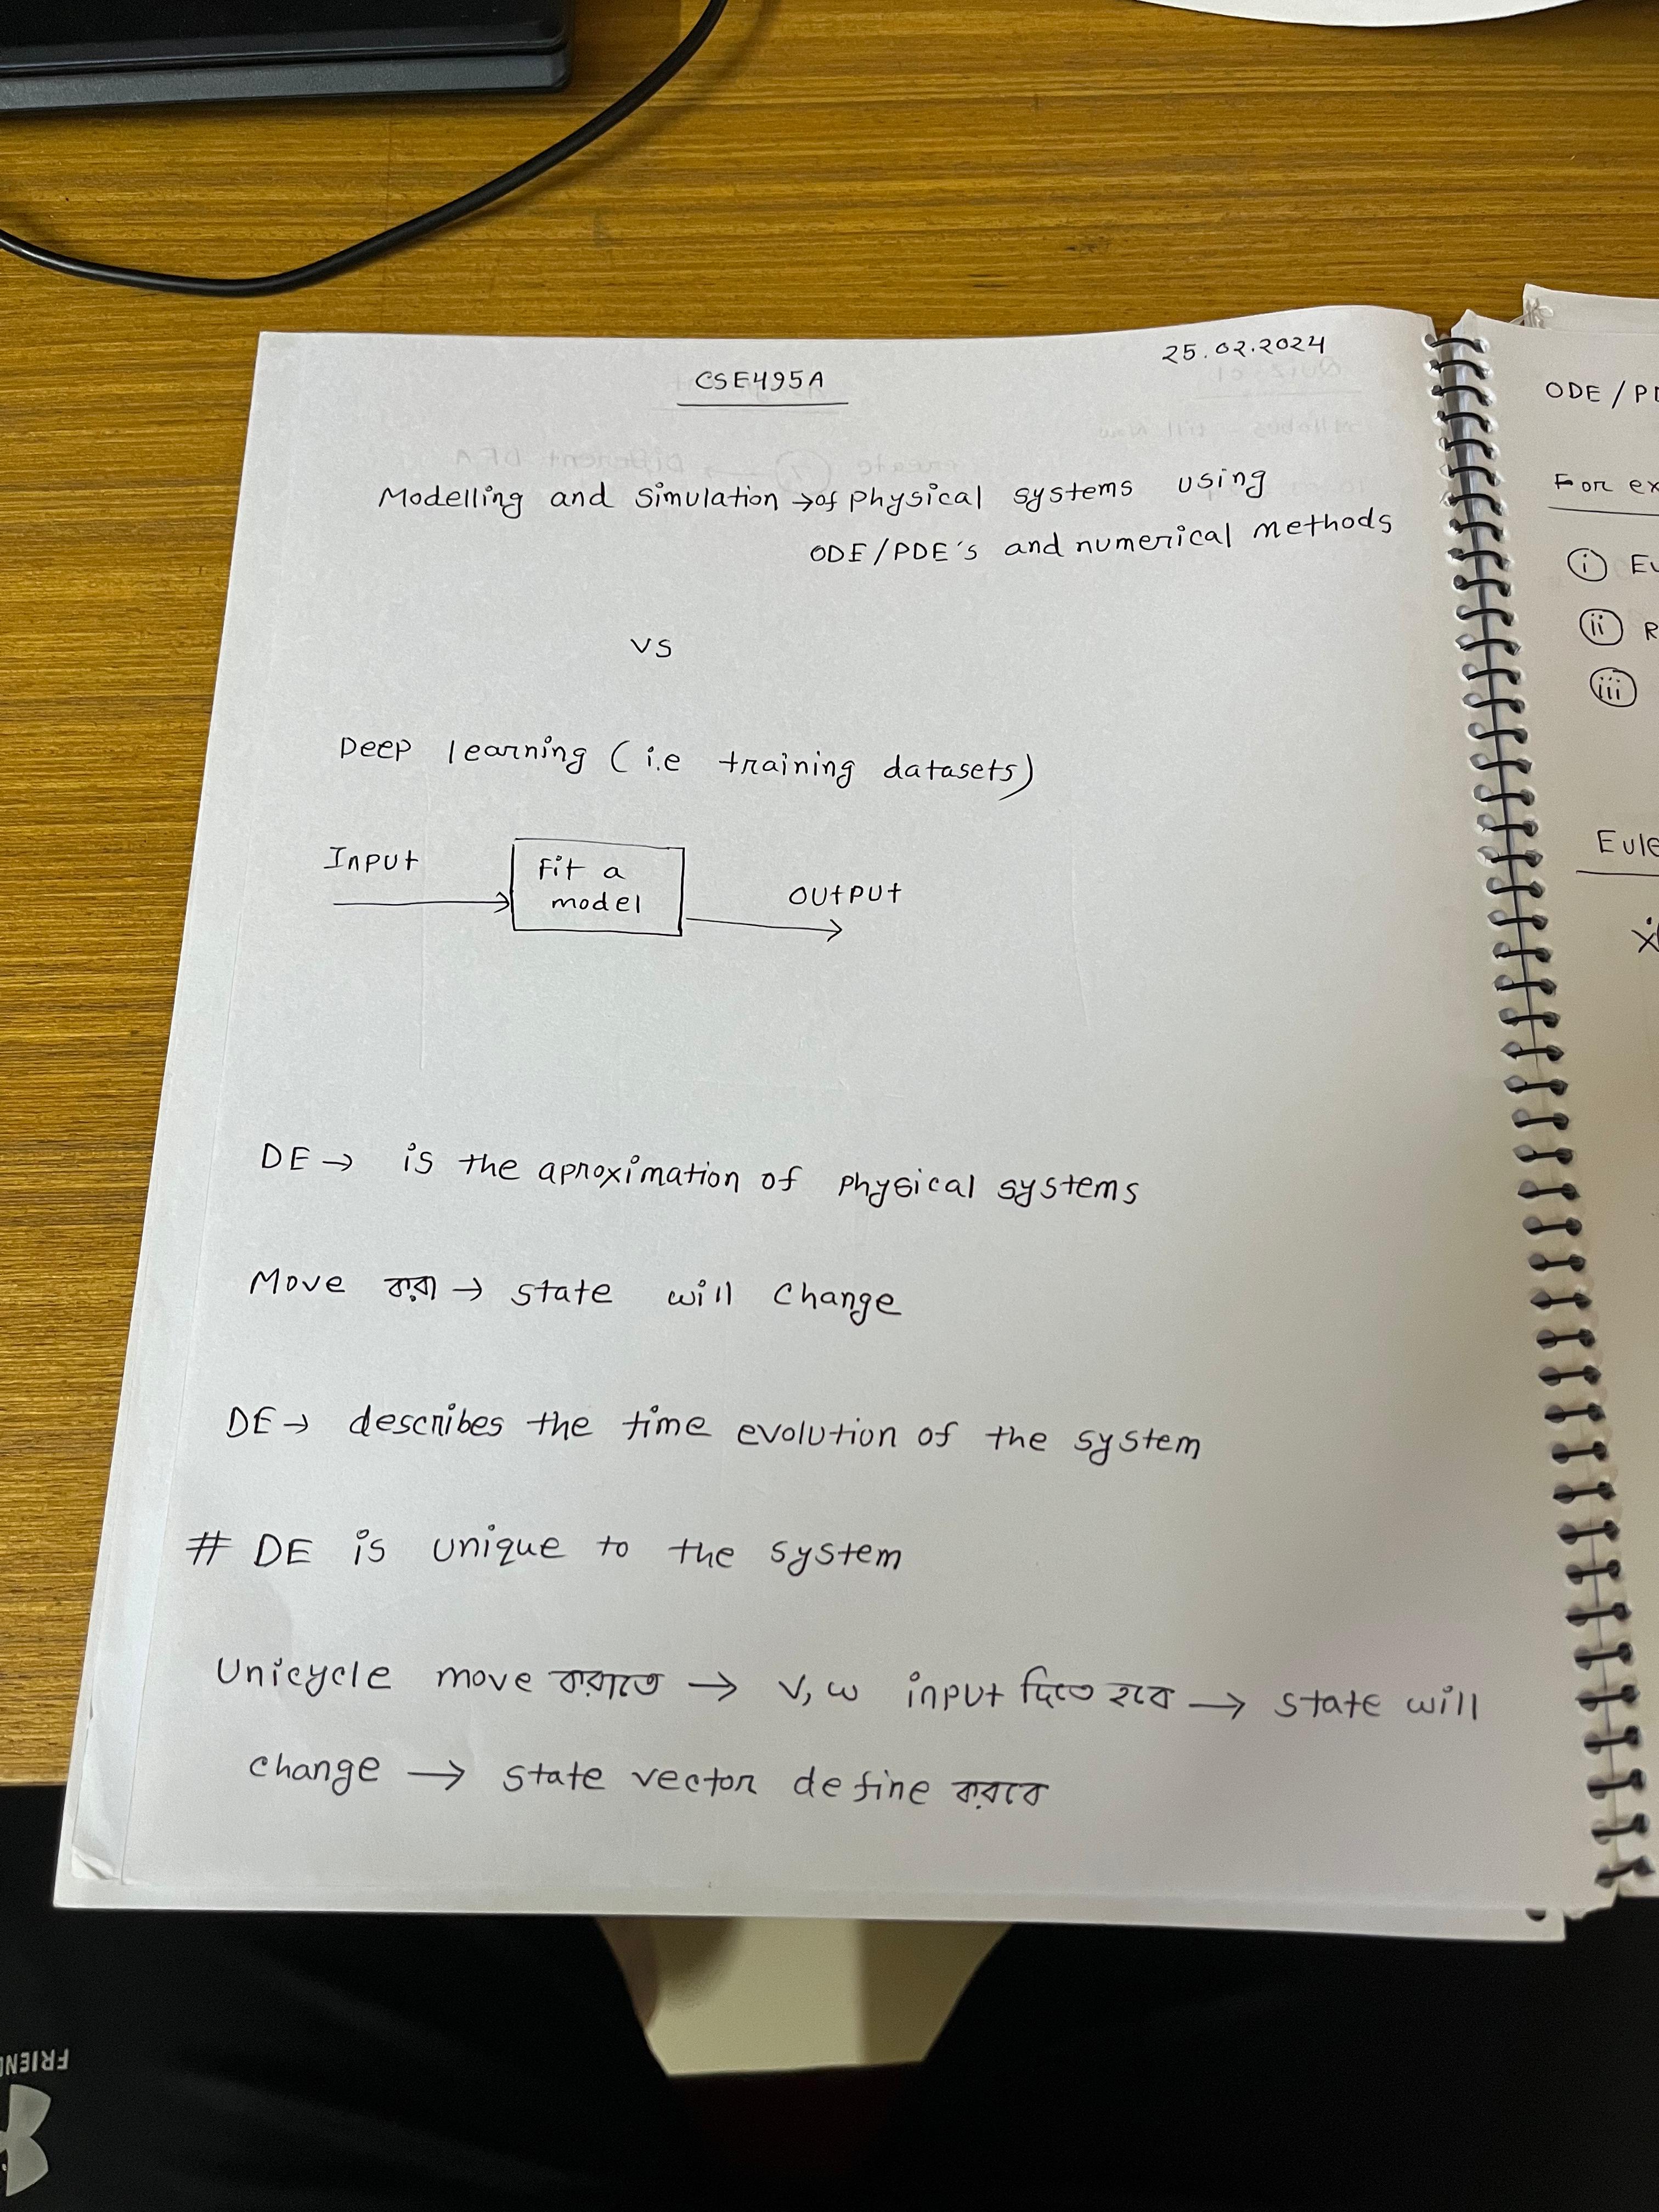 25.02.2024
CSE495A
Modelling and simulation → of physical systems using
ODE/PDE's and numerical methods
vs
Deep learning (i.e training datasets)
Input
Fit a
model
output
DE → is the aproximation of physical systems
Move করা → state will change
DE → describes the time evolution of the system
# DE is unique to the system
Unicycle move করাতে → v, ω input দিতে হবে → state will
change → state vector define করবে
ODE / PD
For ex
i Eu
ii R
iii
Eule
ẋ(
FRIEND